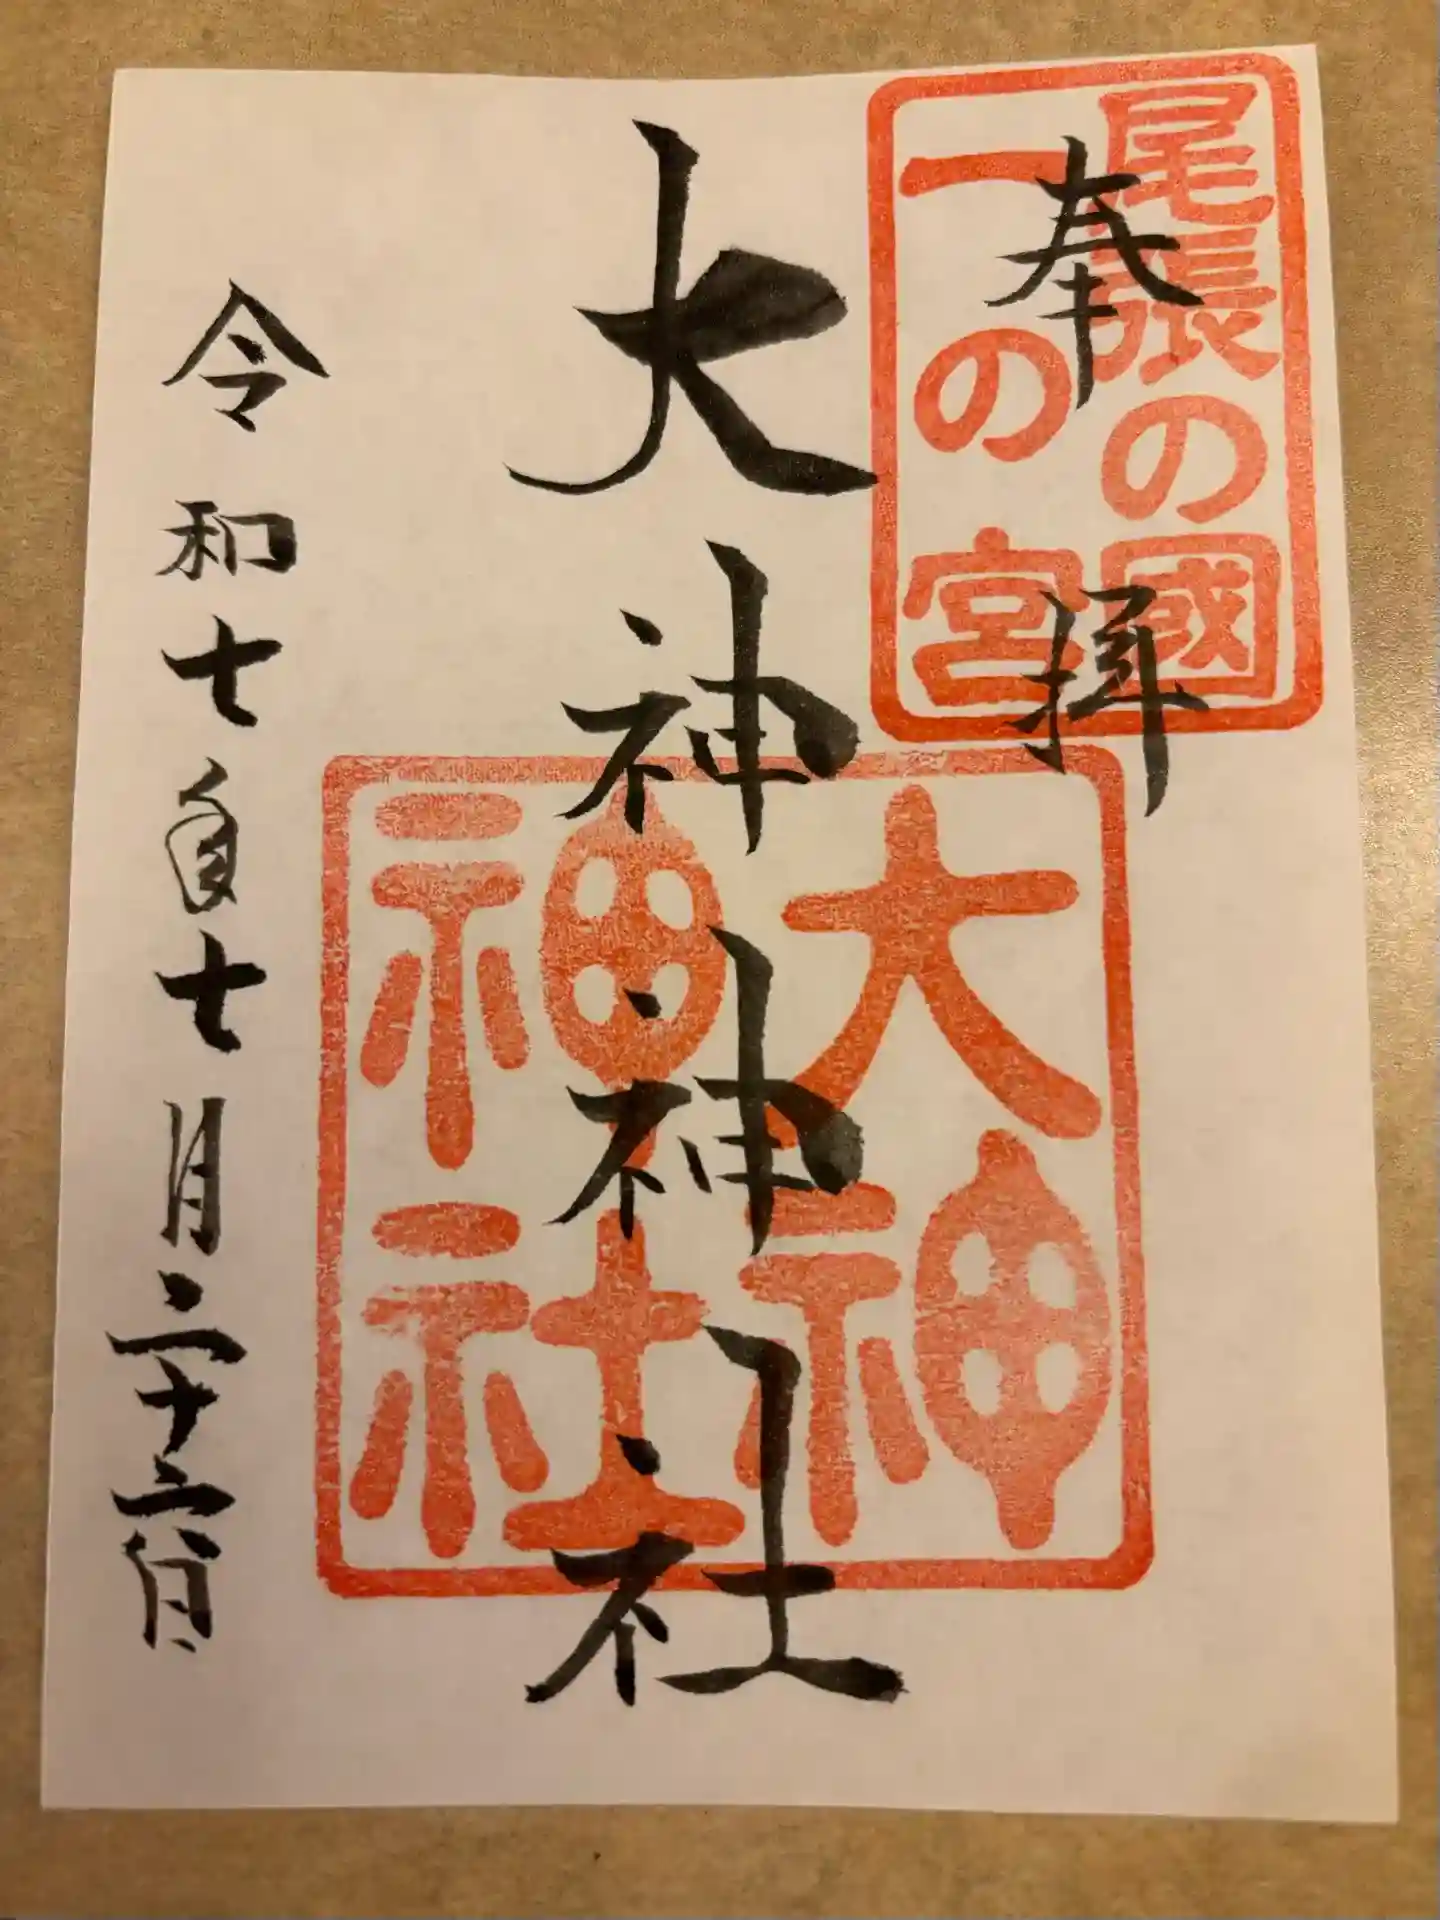 尾張の國
一の宮
奉拝
大神神社
大神
神社
令和七年七月二十三日